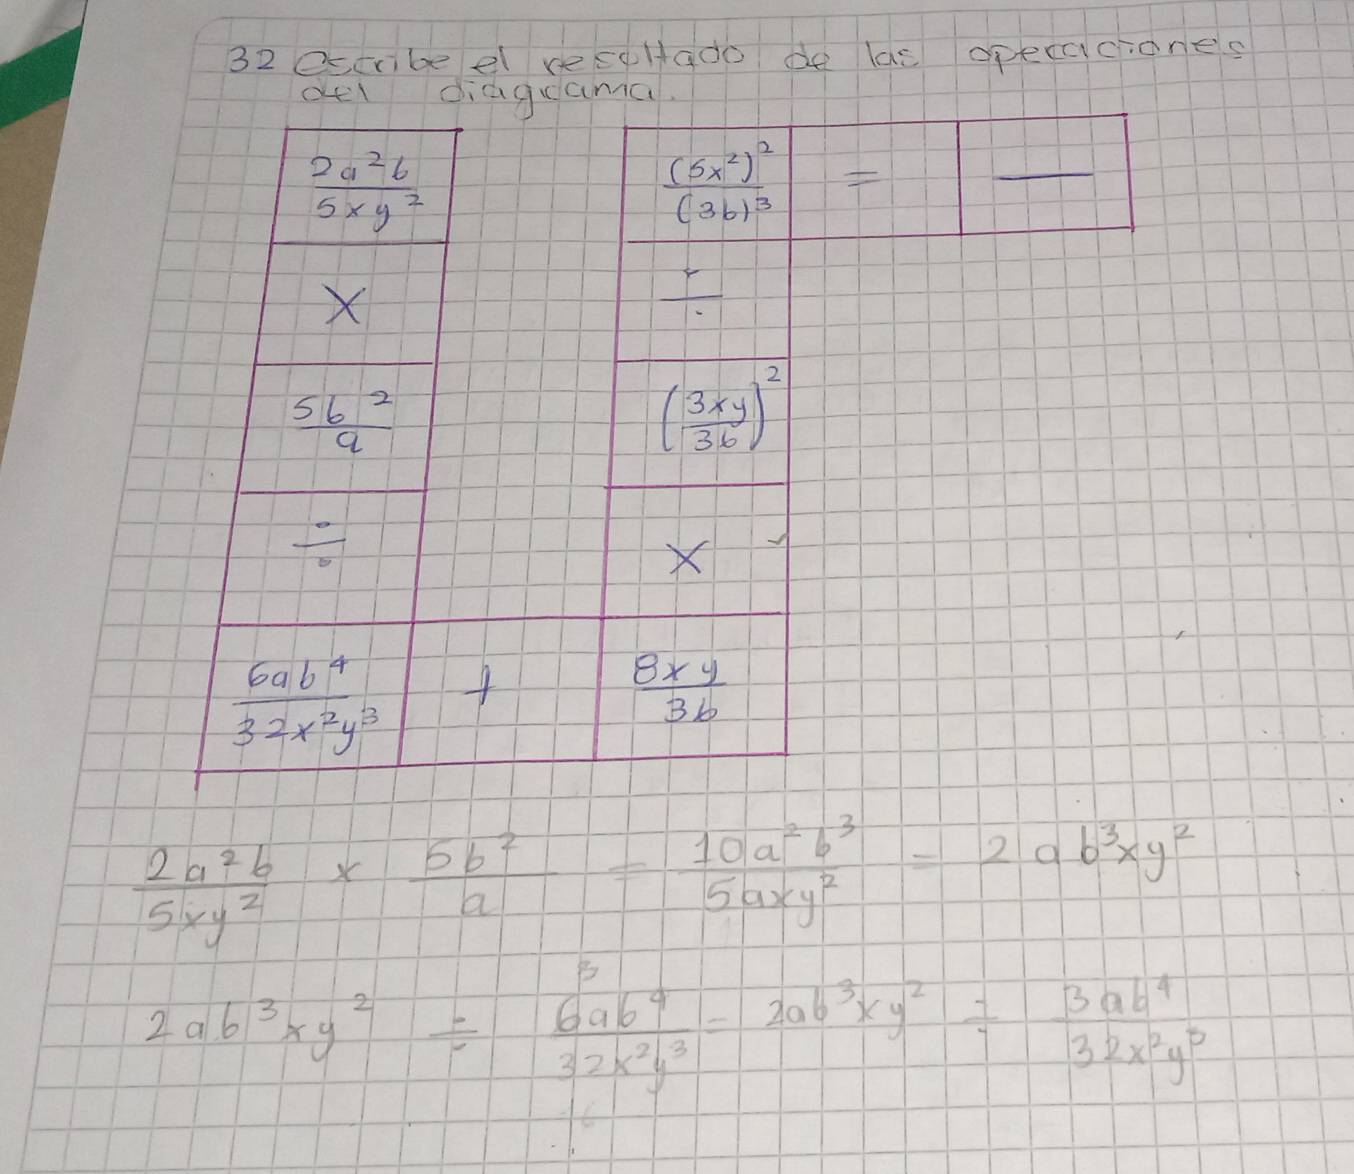 32 Escribe el resultado de las operaciones
del diagrama.
2a²b / 5xy²
(5x²)² / (3b)³ = —
×
÷
5b² / a
(3xy / 3b)²
÷
×
6ab⁴ / 32x²y³ + 8xy / 3b
2a²b / 5xy² × 5b² / a = 10a²b³ / 5axy² = 2ab³xy²
3
2ab³xy² ÷ 6ab⁴ / 32x²y³ = 2ab³xy² ÷ 3ab⁴ / 32x²y³
16